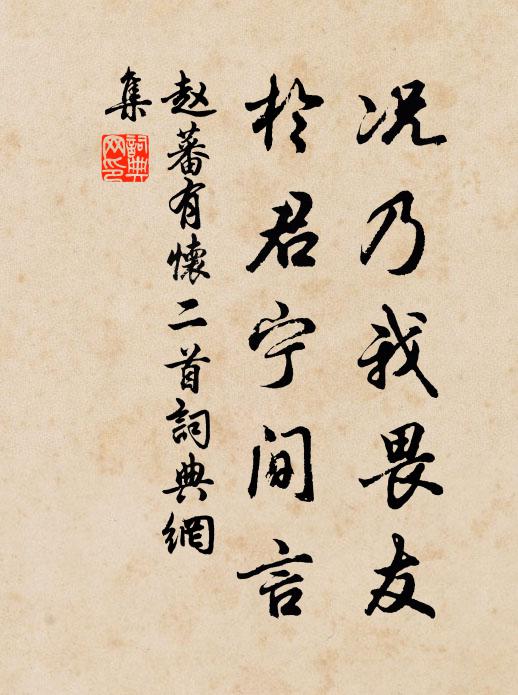 况乃我畏友
於君宁间言
赵蕃有懷二首詞典網
集
詞典网印